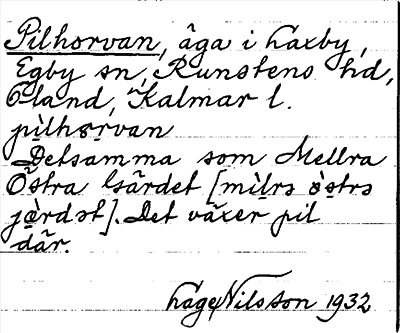 Pilhorvan, äga i Laxby,
Egby sn, Runstens hd,
Öland, Kalmar l.
pìlhoṛvan
Detsamma som Mellra
Östra Gärdet [mìḷrə ò̤strə
jæ̀rdət]. Det växer pil
där.
Hage Nilsson 1932